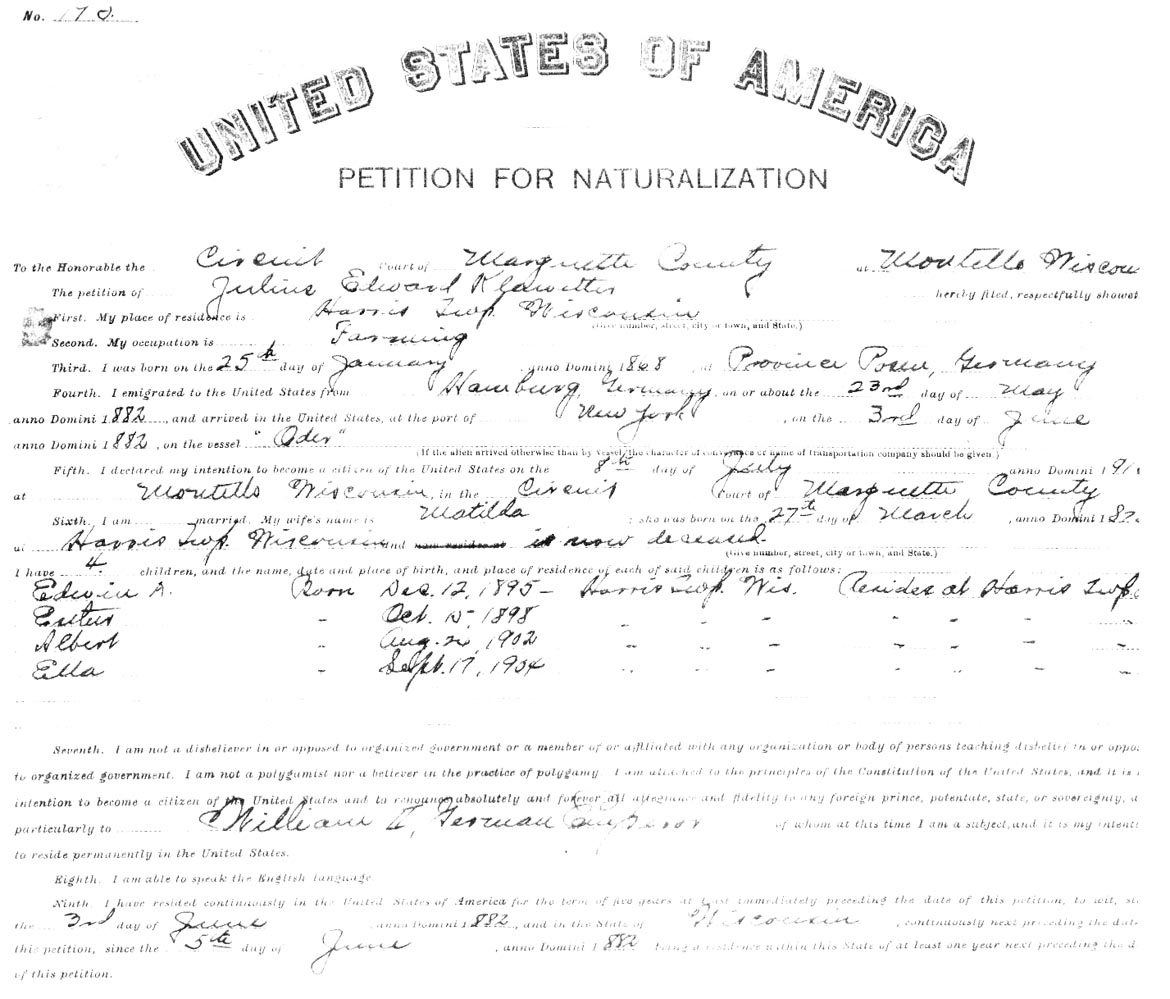 No. 170.
UNITED STATES OF AMERICA
PETITION FOR NATURALIZATION
To the Honorable the Circuit Court of Marquette County at Montello Wiscon
The petition of Julius Edward Klawitter hereby filed, respectfully showet
First. My place of residence is Harris Twp. Wisconsin
(Give number, street, city or town, and State.)
Second. My occupation is Farming
Third. I was born on the 25th day of January anno Domini 1868 at Province Posen, Germany
Fourth. I emigrated to the United States from Hamburg, Germany, on or about the 23rd day of May
anno Domini 1882, and arrived in the United States, at the port of New York, on the 3rd day of June
anno Domini 1882, on the vessel "Oder"
(If the alien arrived otherwise than by vessel, the character of conveyance or name of transportation company should be given.)
Fifth. I declared my intention to become a citizen of the United States on the 8th day of July anno Domini 191
at Montello Wisconsin, in the Circuit Court of Marquette County
Sixth. I am married. My wife's name is Matilda; she was born on the 27th day of March, anno Domini 187
at Harris Twp. Wisconsin and now resides at is now deceased.
(Give number, street, city or town, and State.)
I have 4 children, and the name, date and place of birth, and place of residence of each of said children is as follows:
Edwin A. Born Dec. 12, 1895 - Harris Twp. Wis. Resides at Harris Twp.
Oct. 15, 1898 " " " " " "
Albert " Aug. 1902 " " " " " "
Ella " Sept. 17, 1904 " " " " " "
Seventh. I am not a disbeliever in or opposed to organized government or a member of or affiliated with any organization or body of persons teaching disbelief in or oppos
to organized government. I am not a polygamist nor a believer in the practice of polygamy. I am attached to the principles of the Constitution of the United States, and it is
intention to become a citizen of the United States and to renounce absolutely and forever all allegiance and fidelity to any foreign prince, potentate, state, or sovereignty, a
particularly to William II, German Emperor of whom at this time I am a subject, and it is my intenti
to reside permanently in the United States.
Eighth. I am able to speak the English language.
Ninth. I have resided continuously in the United States of America for the term of five years at least immediately preceding the date of this petition, to wit, si
the 3rd day of June anno Domini 1882, and in the State of Wisconsin, continuously next preceding the dat
this petition, since the 5th day of June, anno Domini 1882 being a residence within this State of at least one year next preceding the d
of this petition.